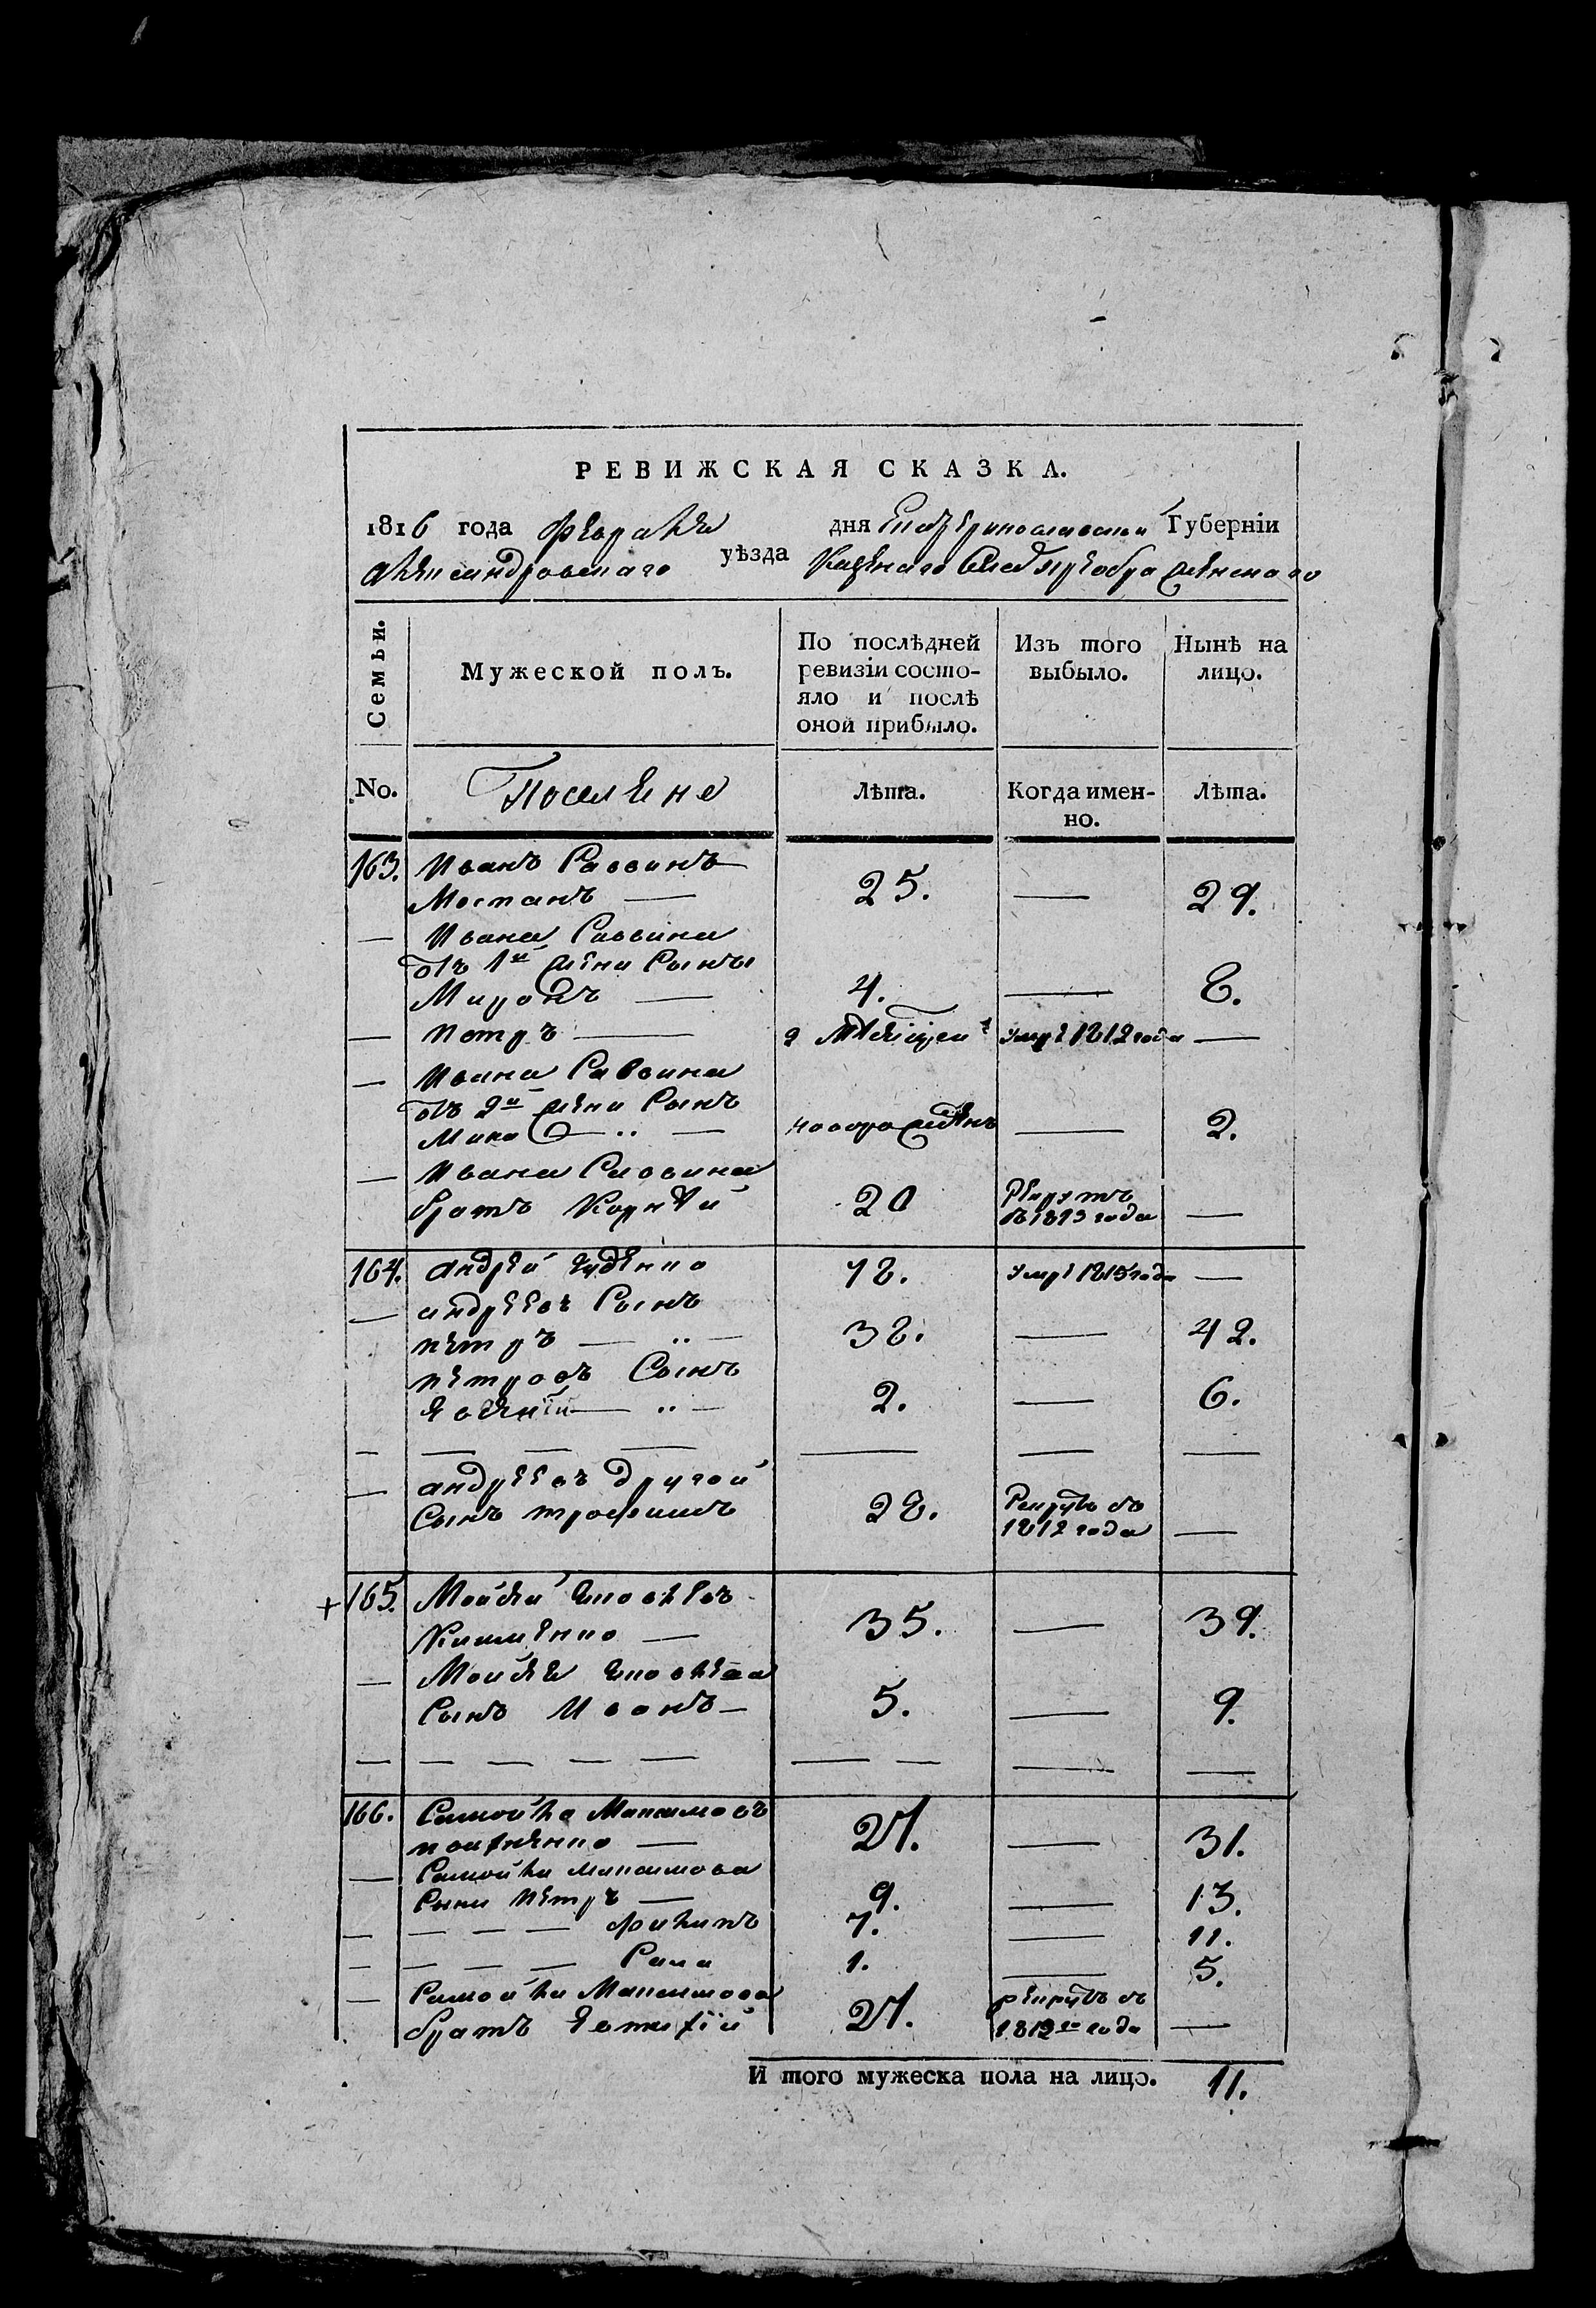 РЕВИЖСКАЯ СКАЗКА.
1816 года Февраля дня Екатеринославской Губерніи
Александровскаго уѣзда Казеннаго Села Преображенскаго
Семьи.
Мужеской полъ.
По послѣдней ревизіи состо-
яло и послѣ
оной прибыло.
Изъ того
выбыло.
Нынѣ на
лицо.
No. Поселяне Лѣта. Когда имен-
но. Лѣта.
163. Иванъ Саввинъ
Мостанъ — 25. — 29.
— Ивана Саввина
отъ 1й жены Сыны
Миронъ — 4. — 8.
— Петръ — умре 1812 года —
— Ивана Саввина
отъ 2й жены Сынъ
— новорожденъ — 2.
— Ивана Саввина
братъ Корнѣй 20 Рекрутъ
въ 1813 года —
164. Андрей 78. умре 1815 года —
— андреевъ Сынъ
петръ — 38. — 42.
петровъ Сынъ
2. — 6.
— — — — — — —
— андреевъ другой
Сынъ трофимъ 28. Рекрутъ въ
1812 года —
+ 165. Мойсей Яковлевъ
Кишненко — 35. — 39.
— Мойсея Яковлева
Сынъ Иванъ — 5. — 9.
— — — — — — — — —
166. Самойла Максимовъ
— 27. — 31.
— Самойлы максимова
Сыны петръ — 9. — 13.
— — — — Филипъ 7. — 11.
— — — — Сава 1. — 5.
— Самойлы Максимова
братъ Евтихій 27. рекрутъ въ
1812го года —
И того мужеска пола на лицо. 11.